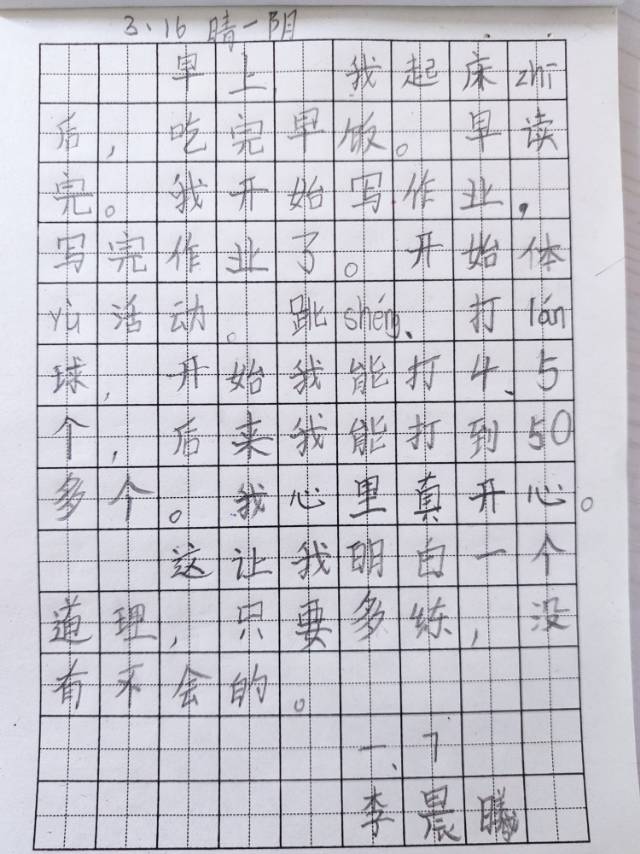 3.16 晴一阴
早上，我起床zhī
后，吃完早饭。早读
完。我开始写作业，
写完作业了。开始体
yù活动。跳shéng、打lán
球，开始我能打4、5
个，后来我能打到50
多个。我心里真开心。
这让我明白一个
道理，只要多练，没
有不会的。
一、7
李晨曦